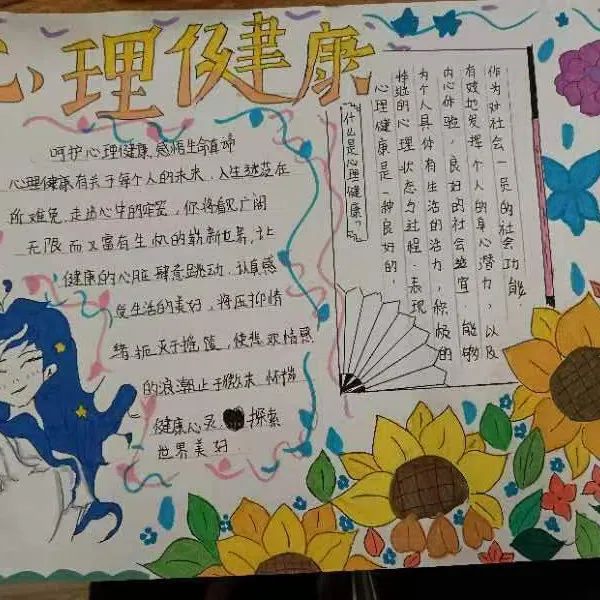 心理健康
呵护心理健康 感悟生命真谛
心理健康有关于每个人的未来，人生迷茫在
所难免，走出心中的牢笼，你将看见广阔
无限而又富有生机的崭新世界，让
健康的心脏肆意跳动，认真感
受生活的美好，将压抑情
绪扼灭于摇篮，使悲观情感
的浪潮止于微末 怀揣
健康心灵 探索
世界美好
什么是心理健康？
心理健康是一种良好的，
持续的心理状态与过程，表现
为个人具有生活的活力，积极的
内心体验，良好的社会适宜 能够
有效地发挥个人的身心潜力 以及
作为对社会一员的社会功能.